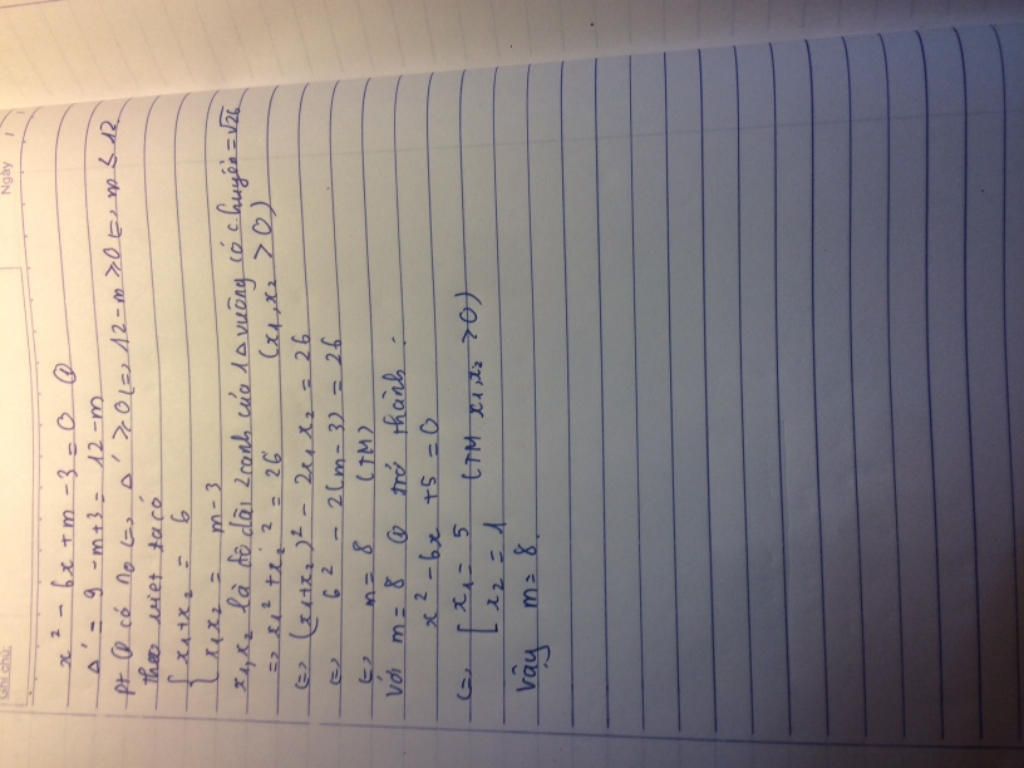 Ghi chú:
Ngày
x² - 6x + m - 3 = 0 ①
Δ' = 9 - m + 3 = 12 - m
pt ① có no <=> Δ' ≥ 0 <=> 12 - m ≥ 0 <=> m ≤ 12
theo viet ta có
{ x₁ + x₂ = 6
{ x₁x₂ = m - 3
x₁, x₂ là độ dài 2 cạnh của 1 Δ vuông có c.huyền = √26
=> x₁² + x₂² = 26 (x₁, x₂ > 0)
<=> (x₁+x₂)² - 2x₁x₂ = 26
<=> 6² - 2(m-3) = 26
<=> m = 8 (TM)
Với m = 8 ① trở thành :
x² - 6x + 5 = 0
<=> [ x₁ = 5 (TM x₁,x₂ > 0)
[ x₂ = 1
Vậy m = 8.